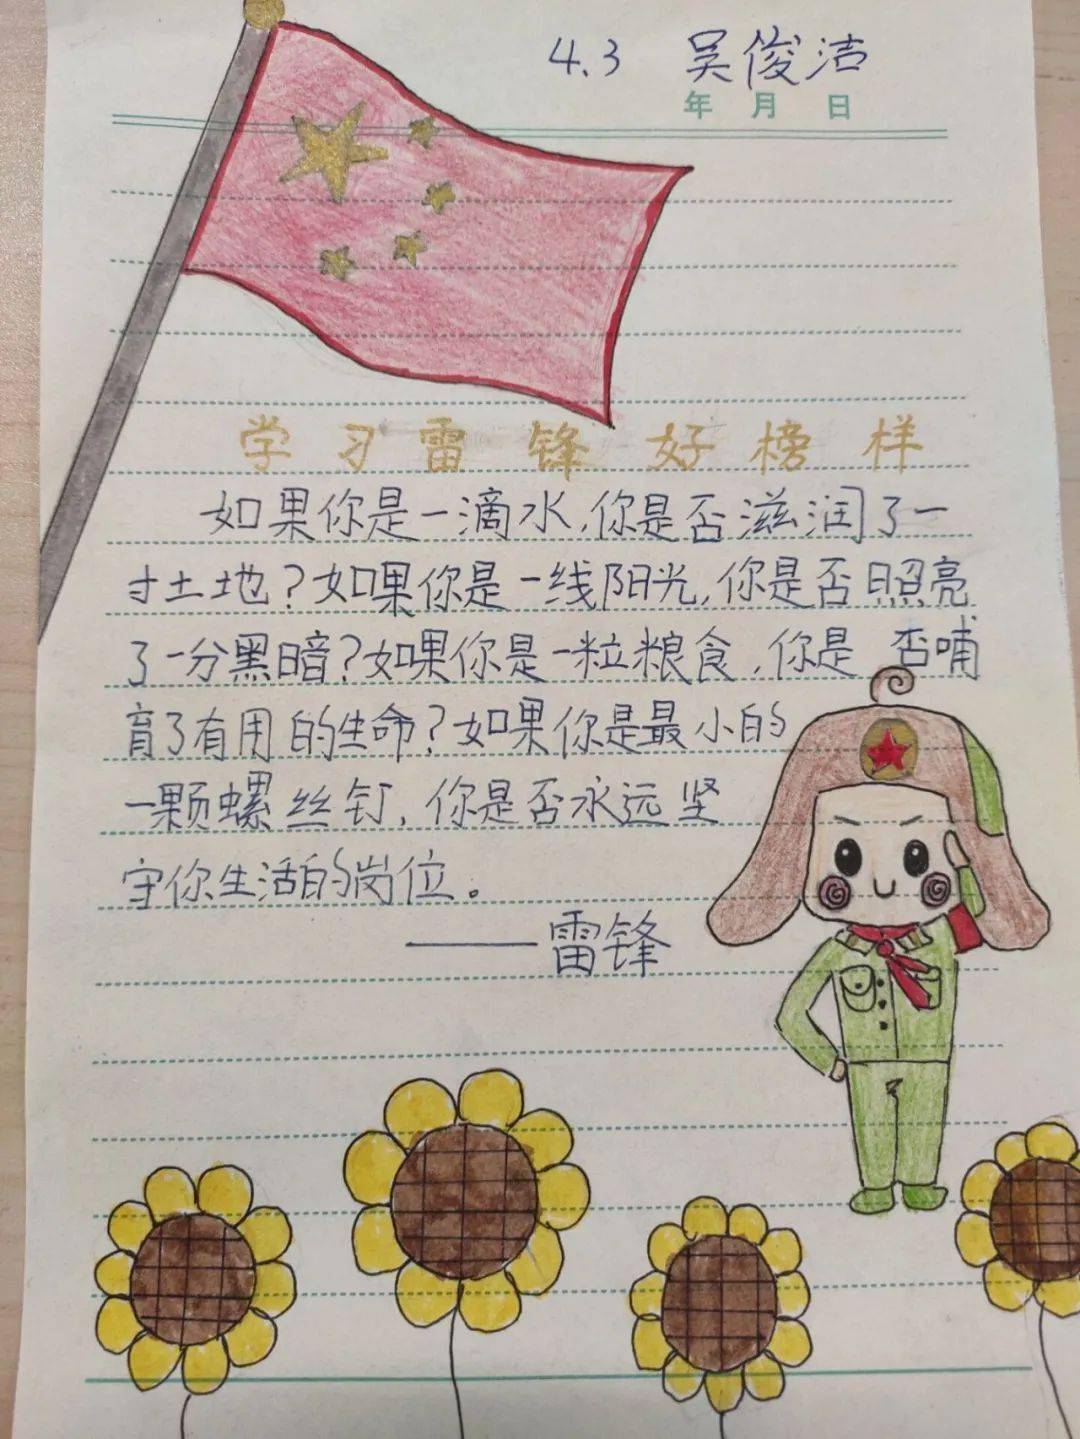 4.3 吴俊洁
年 月 日
学习雷锋好榜样
如果你是一滴水,你是否滋润了一
寸土地?如果你是一线阳光,你是否照亮
了一分黑暗?如果你是一粒粮食,你是否哺
育了有用的生命?如果你是最小的
一颗螺丝钉,你是否永远坚
守你生活的岗位。
——雷锋